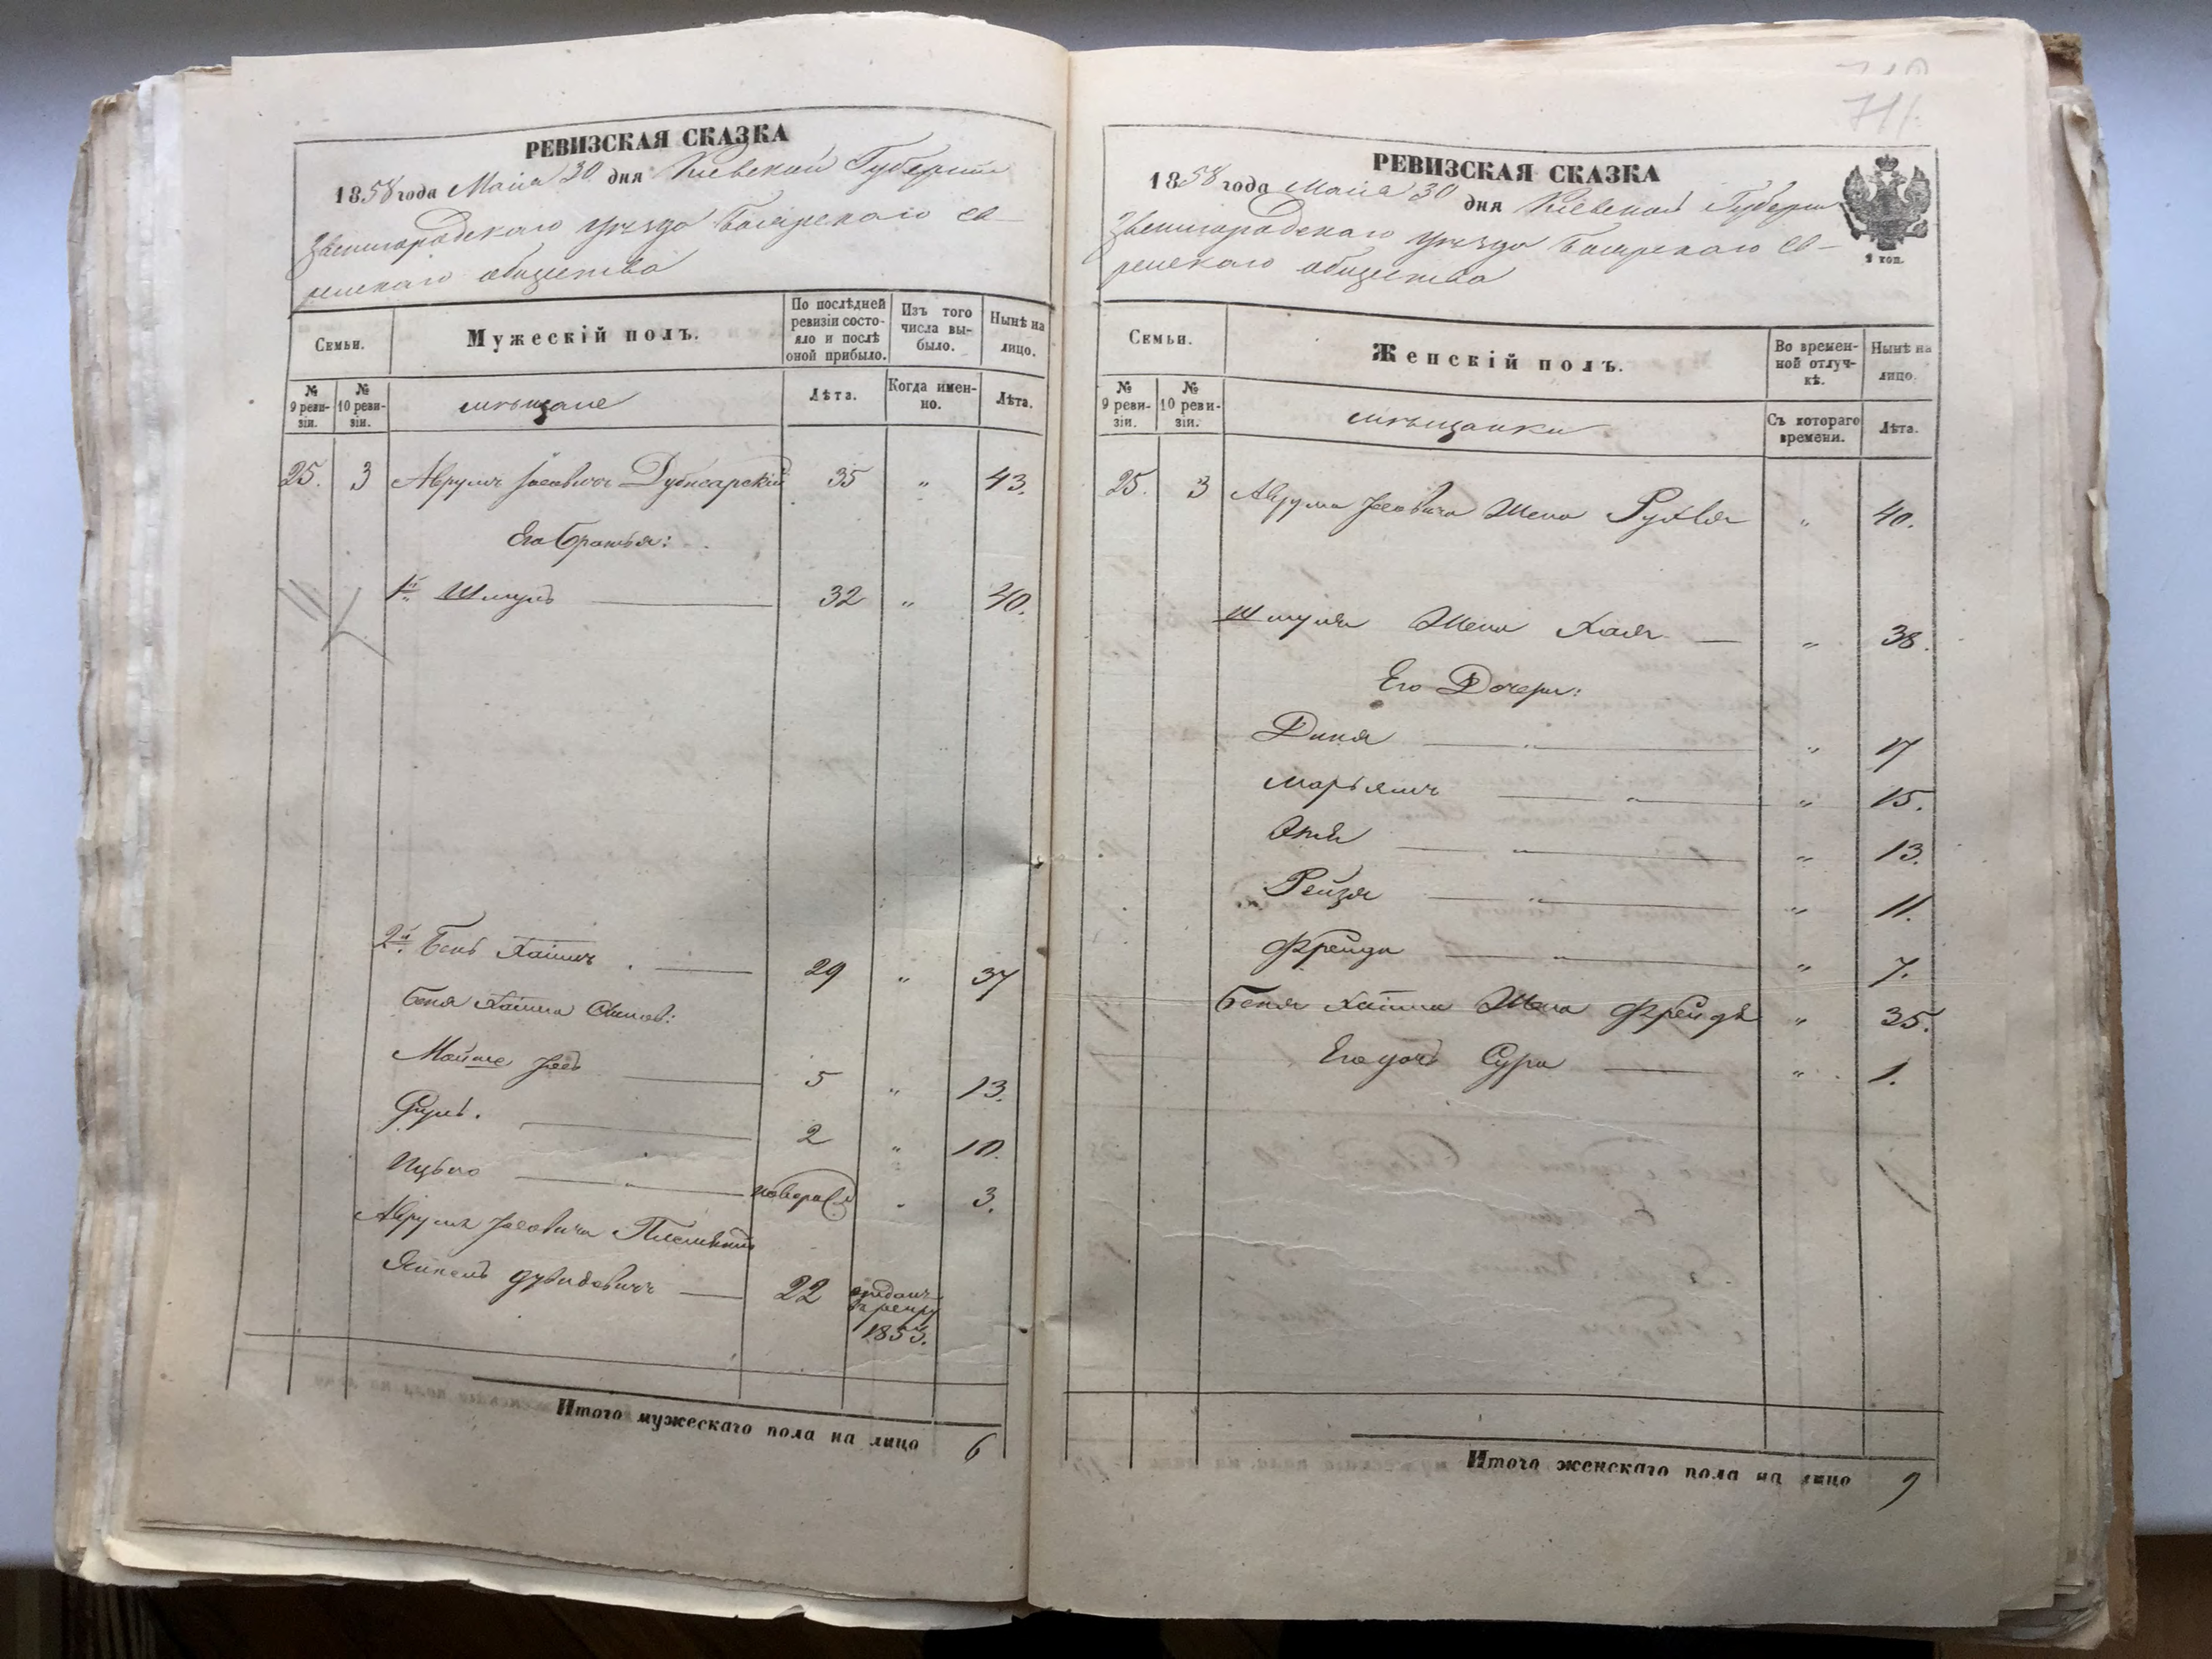 РЕВИЗСКАЯ СКАЗКА
1858 года Маия 30 дня Кіевской Губерніи
Звенигородскаго уѣзда Боярскаго Ев-
рейскаго общества
Семьи.
Мужескій полъ.
По послѣдней ревизіи состо-
яло и послѣ оной прибыло.
Изъ того числа вы-
было.
Нынѣ на лицо.
№ 9 реви-
зіи.
№ 10 реви-
зіи.
мѣщане
Лѣта.
Когда имен-
но.
Лѣта.
25. 3 Аврумъ Іосовичъ Дубносарскій 35 " 43.
Его братья:
1й Шмуль 32 " 40.
2й Бень Хаимъ 29 " 37
Беня Хаима сынов:
Мойше Іось 5 " 13.
Сруль. 2 " 10.
" новорож " 3.
Аврума Іосовича Племеник
Янкель Дувидовичъ 22 отданъ
въ рекру
1853.
Итого мужескаго пола на лицо 6
711.
РЕВИЗСКАЯ СКАЗКА
1858 года Маия 30 дня Кіевской Губерніи
1 коп.
Звенигородскаго уѣзда Боярскаго Ев-
рейскаго общества
Семьи.
Женскій полъ.
Во времен-
ной отлуч-
кѣ.
Нынѣ на лицо.
№ 9 реви-
зіи.
№ 10 реви-
зіи.
мѣщанки
Съ котораго времени.
Лѣта.
25. 3 Аврума Іосовича Жена Рухля " 40.
Шмуля Жена Хая " 38.
Его Дочери:
Диня " " 17
Марьямъ " " 15.
Этя " " 13.
Рейзя " " 11.
Фрейда " " 7.
Беня Хаима Жена Фрейда " 35.
Его дочь Сура " 1.
Итого женскаго пола на лицо 9